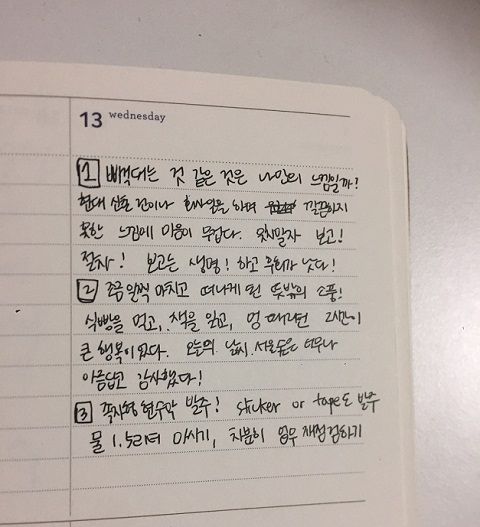 13 wednesday
1 삐걱대는 것 같은 것은 나만의 느낌일까!
현대 신호 건이나 회사일을 하며 깔끔하지
못한 느낌에 마음이 무겁다. 잊지말자 보고!
절차! 보고는 생명! 하고 후회가 낫다!
2 조금 일찍 마치고 떠나게 된 뜻밖의 소풍!
식빵을 먹고, 책을 읽고, 멍 때리던 2시간이
큰 행복이었다. 오늘의 날씨. 서울숲은 너무나
아름답고 감사했다!
3 족자형 현수막 발주! sticker or tape도 발주
물 1.5리터 마시기, 차분히 업무 재점검하기